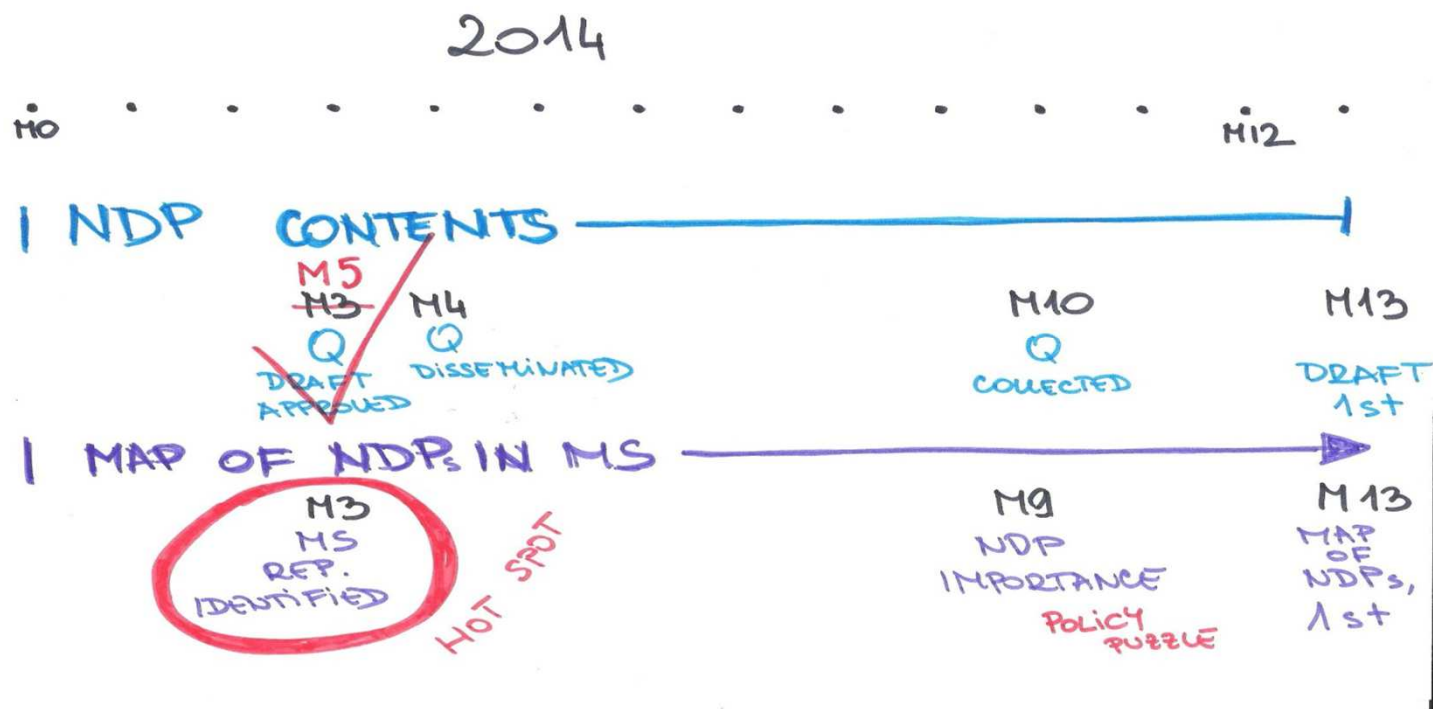 2014
M0
M12
| NDP CONTENTS
M5
M3 M4 M10 M13
Q Q Q
DRAFT APPROVED
DISSEMINATED
COLLECTED
DRAFT
1st
| MAP OF NDPs IN MS
M3
MS
REP.
IDENTIFIED
HOT SPOT
M9
NDP
IMPORTANCE
POLICY
PUZZLE
M13
MAP
OF
NDPs,
1st